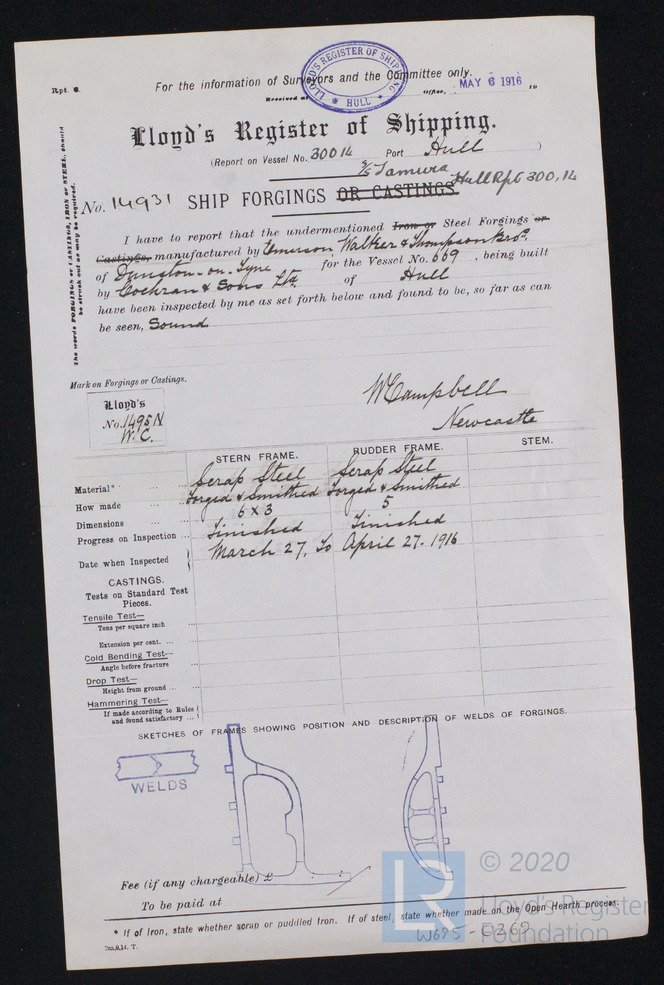 LLOYD'S REGISTER OF SHIPPING
* HULL *
Rpt. 6.
For the information of Surveyors and the Committee only.
Received at Office, MAY 6 1916 19
Lloyd's Register of Shipping.
(Report on Vessel No. 30014 Port Hull )
S/S Tamura
Hull Rpt 300,14
No. 14931 SHIP FORGINGS OR CASTINGS.
The words FORGINGS or CASTINGS, IRON or STEEL, should be struck out as may be required.
I have to report that the undermentioned Iron or Steel Forgings or
Castings, manufactured by Emerson Walker & Thompson Bros.
of Dunston-on-Tyne for the Vessel No. 669, being built
by Cochran & Sons Ltd of Hull
have been inspected by me as set forth below and found to be, so far as can
be seen, Sound
Mark on Forgings or Castings.
Lloyd's
No. 1495N
W.C.
W Campbell
Newcastle
STERN FRAME. RUDDER FRAME. STEM.
Material* ... Scrap Steel Scrap Steel
How made ... Forged & Smithed Forged & Smithed
Dimensions ... 6 x 3 5
Progress on Inspection ... Finished Finished
Date when Inspected March 27, to April 27. 1916
CASTINGS.
Tests on Standard Test
Pieces.
Tensile Test—
Tons per square inch
Extension per cent. ...
Cold Bending Test—
Angle before fracture
Drop Test—
Height from ground ...
Hammering Test—
If made according to Rules
and found satisfactory ...
SKETCHES OF FRAMES SHOWING POSITION AND DESCRIPTION OF WELDS OF FORGINGS.
WELDS
Fee (if any chargeable) £
To be paid at
* If of Iron, state whether scrap or puddled Iron. If of steel, state whether made on the Open Hearth process.
7m,9,14. T.
W695-0269
LR
© 2020
Lloyd's Register
Foundation